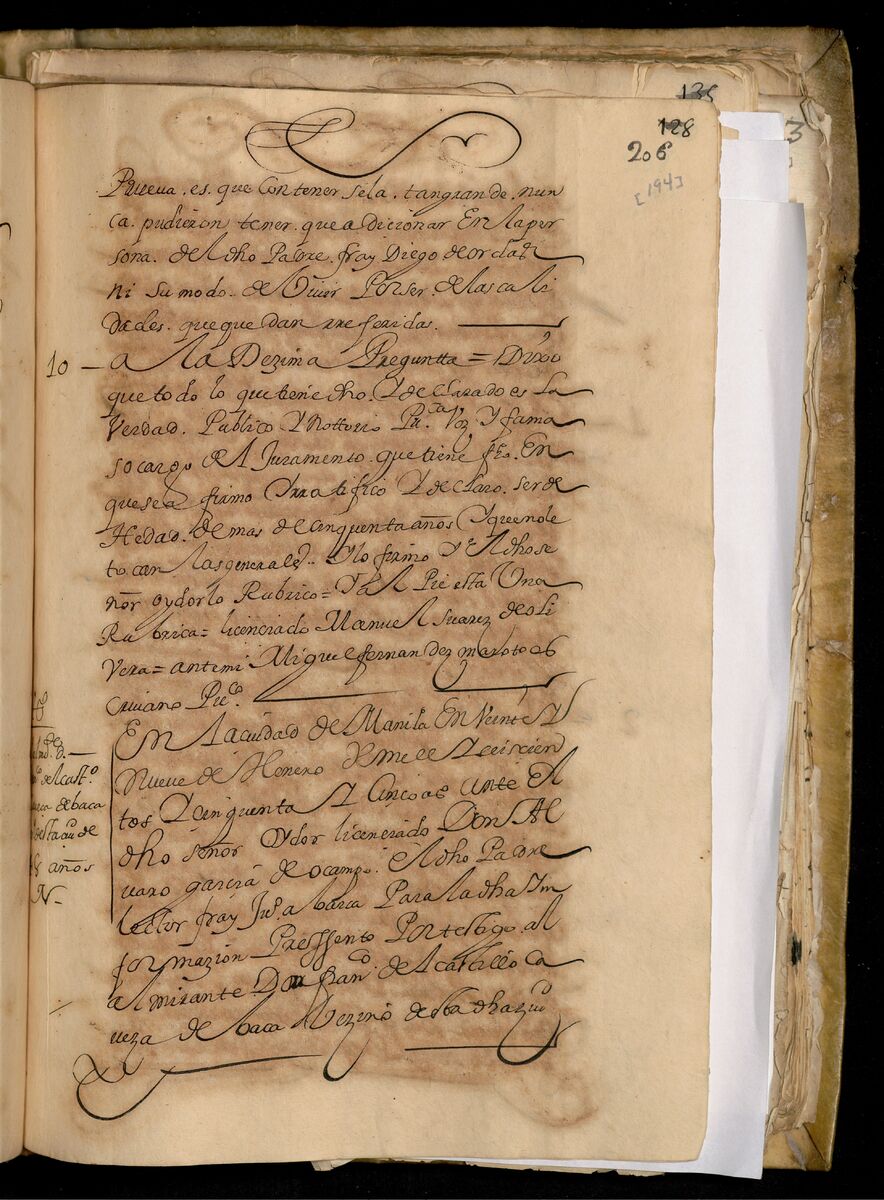 135
128
206
[194]
3
Prueva. es. que Contener sela. tan grande. nun
ca. pudieron tener. que adicionar En la per
sona. del dho Padre. fray Diego de ordas
ni su modo. de Vivir Por ser. de las cali
dades. que quedan rreferidas.
10 — a la Dezima Preguntta = Dixo
que todo lo que tiene dho. Y declarado es La
Verdad. Publico Y nottorio Pu.ca Voz Y fama
so cargo del Juramento. que tiene fho. En
que se a firmo Y rratifico Y declaro. ser de
Hedad. de mas de cinquenta años Y que no le
tocan las generales. Y lo firmo Y el dho se
ñor oydor lo Rubrico = Y al Pie esta Una
Rubrica = licenciado Manuel suarez de oli
Vera = ante mi Miguel fernandez maroto es
crivano Pu.co
En la ciudad de Manila En Veinte Y
Nueve de Henero de mill Y seiscien
tos Y cinquenta Y Cinco as ante El
dho señor oydor licenciado Don Al
varo garcia de ocampo. El dho Padre
Lector fray Ju.o abarca Para la dha Yn
formazion Pressento Por testigo. al
almirante Don fran.co de Acastillo Ca
veza de baca Vezino desta dha ziud
de castº
de baca
desta ciu de
años
N-